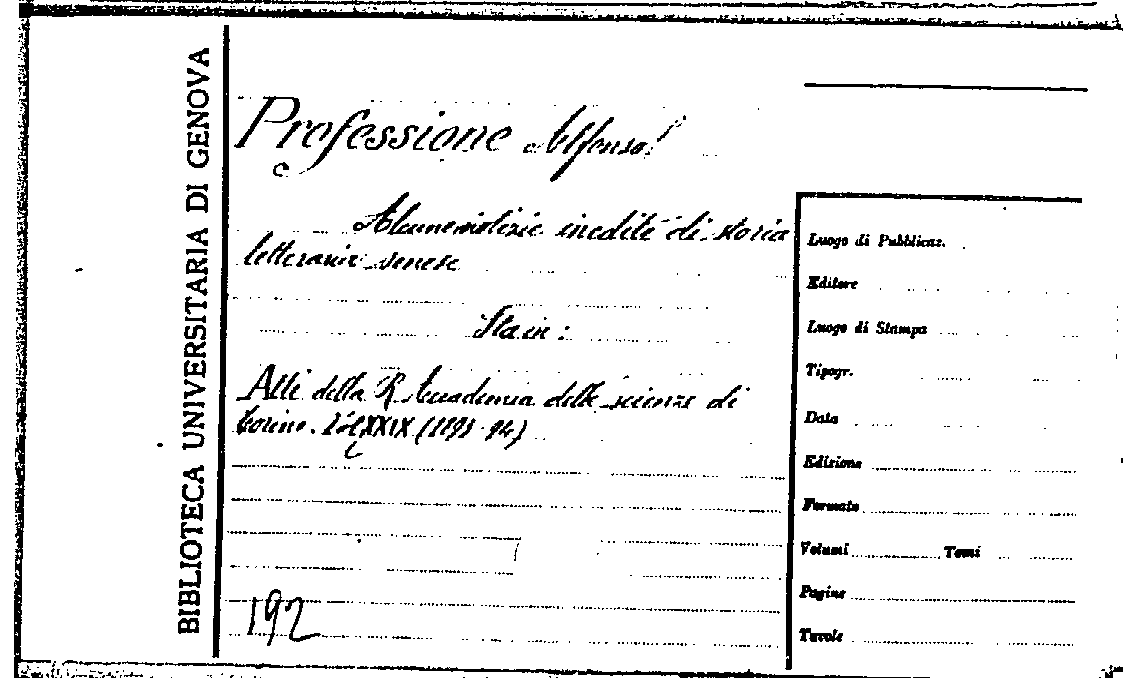 BIBLIOTECA UNIVERSITARIA DI GENOVA
Professione Alfonso
Alcune notizie inedite di storia
letteraria senese
Sta in:
Atti della R. Accademia delle scienze di
Torino. Vol XXIX (1893-94)
192
Luogo di Pubblicaz.
Editore
Luogo di Stampa
Tipogr.
Data
Edizione
Formato
Volumi Tomi
Pagine
Tavole